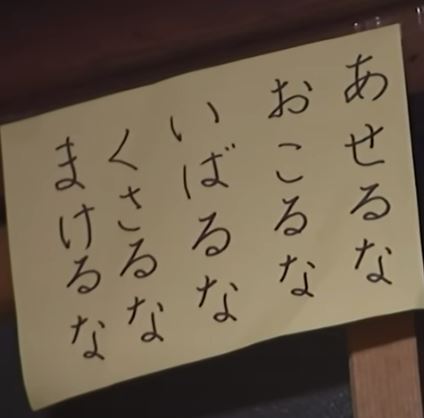 あせるな
おこるな
いばるな
くさるな
まけるな